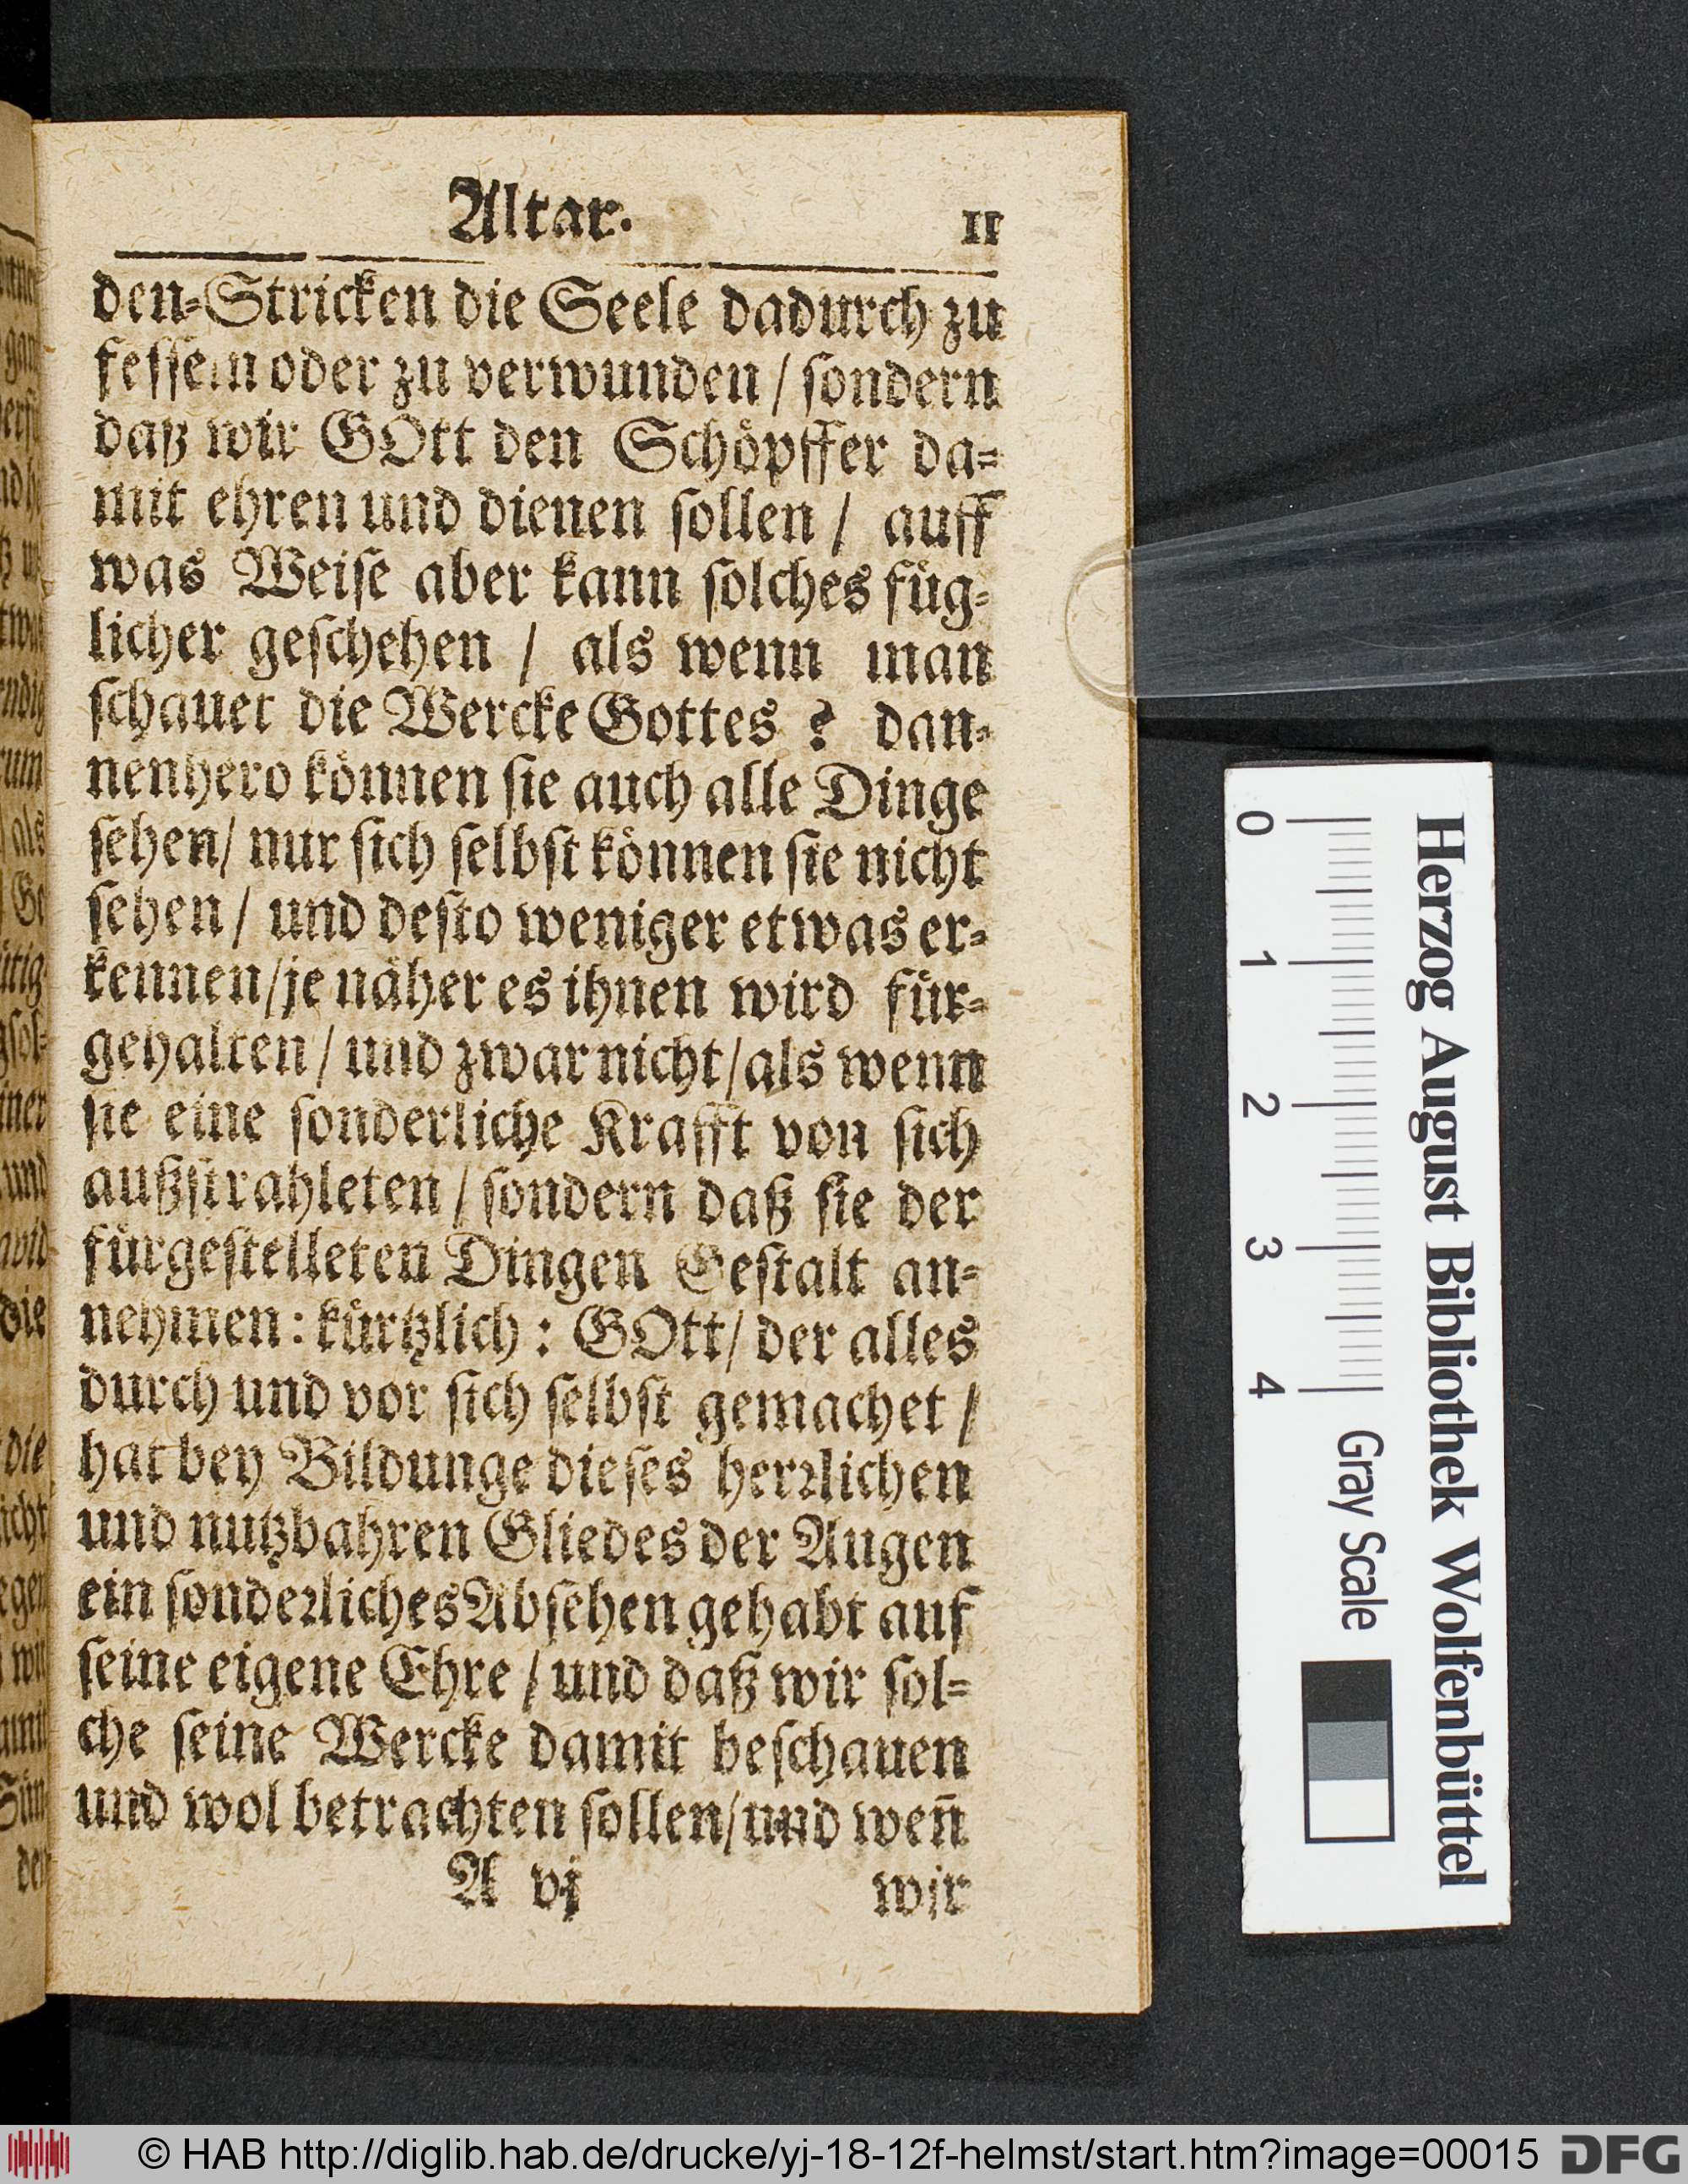 Altar. 11
den-Stricken die Seele dadurch zu
fesseln oder zu verwunden / sondern
daß wir GOtt den Schöpffer da-
mit ehren und dienen sollen / auff
was Weise aber kann solches füg-
licher geschehen / als wenn man
schauet die Wercke Gottes ? dan-
nenhero können sie auch alle Dinge
sehen/ nur sich selbst können sie nicht
sehen / und desto weniger etwas er-
kennen/je näher es ihnen wird für-
gehalten / und zwar nicht/als wenn
sie eine sonderliche Krafft von sich
außstrahleten / sondern daß sie der
fürgestelleten Dingen Gestalt an-
nehmen: kürtzlich : GOtt/ der alles
durch und vor sich selbst gemachet /
hat bey Bildunge dieses herrlichen
und nutzbahren Gliedes der Augen
ein sonderliches Absehen gehabt auf
seine eigene Ehre / und daß wir sol-
che seine Wercke damit beschauen
und wol betrachten sollen/und wen̄
A vj wir
Herzog August Bibliothek Wolfenbüttel
0 1 2 3 4 Gray Scale
© HAB http://diglib.hab.de/drucke/yj-18-12f-helmst/start.htm?image=00015 DFG